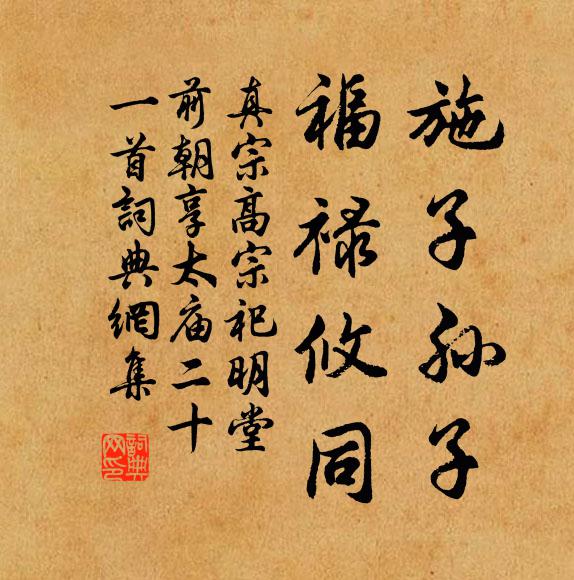 施子孙子
福禄攸同
真宗高宗祀明堂
前朝享太庙二十
一首詞典網集
詞典
网印